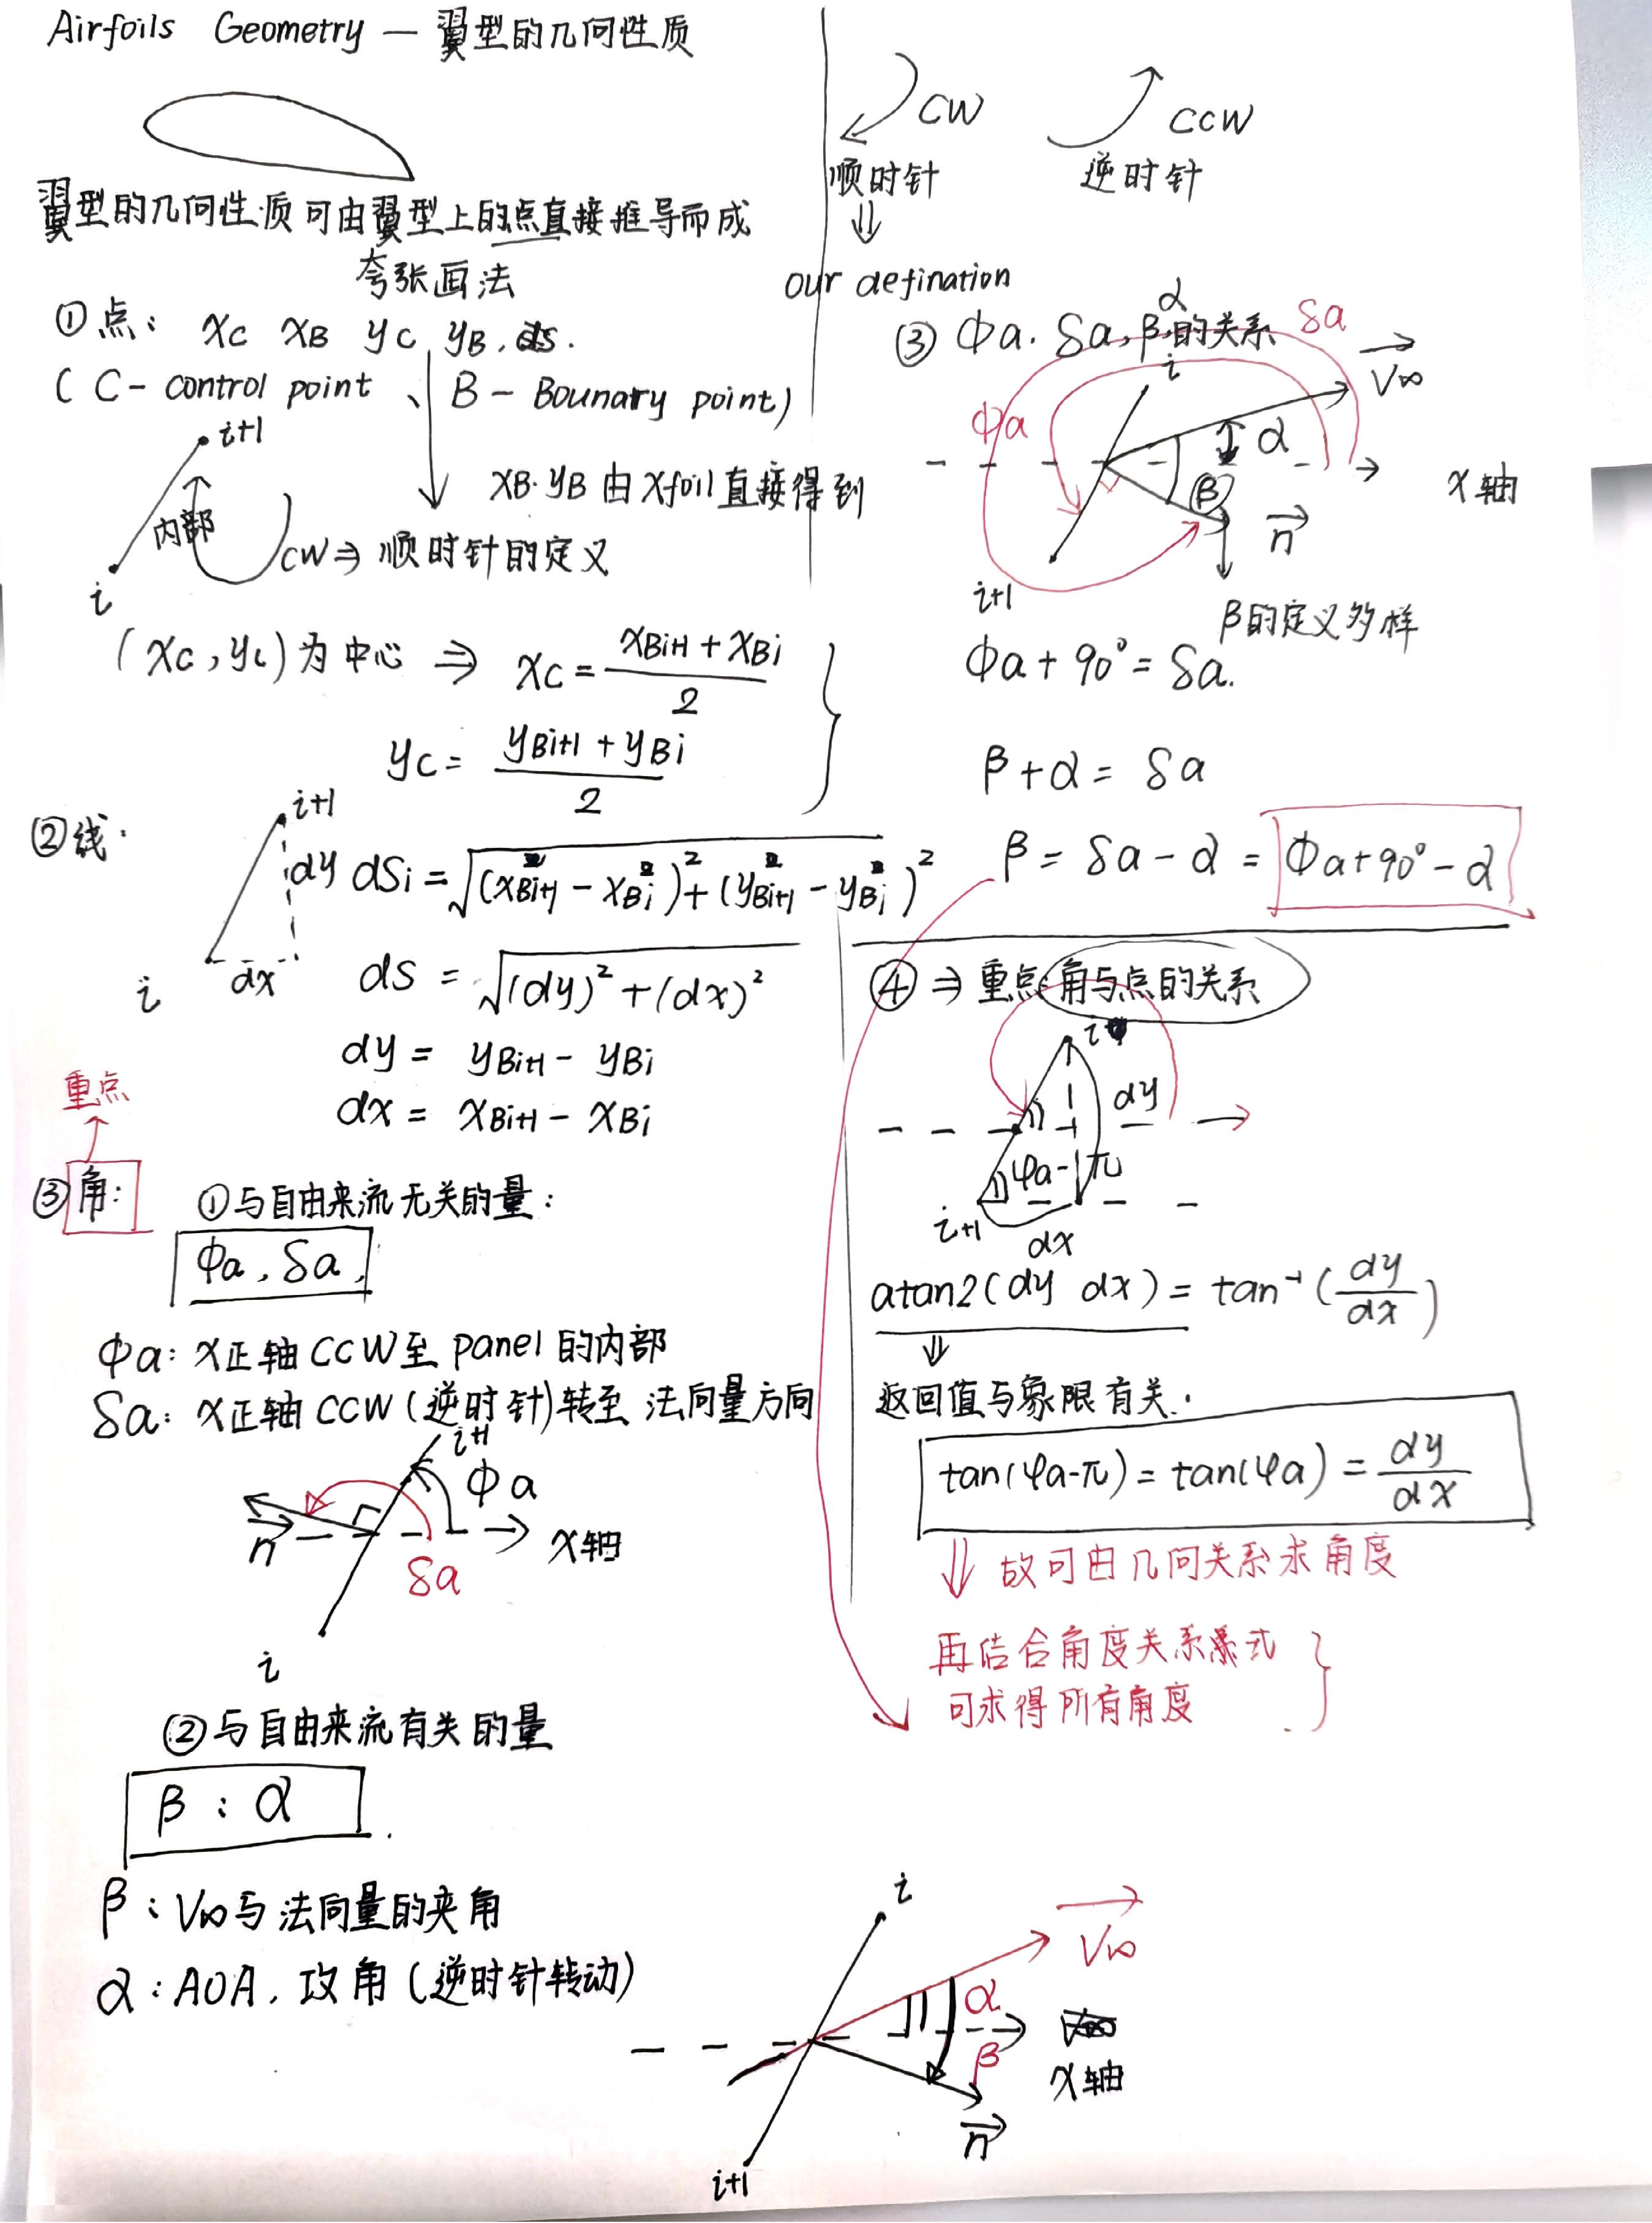 Airfoils Geometry — 翼型的几何性质
翼型的几何性质可由翼型上的点直接推导而成
夸张画法
①点: xC xB yC yB, ds.
( C - control point 、 B - Bounary point)
i+1
内部
i
CW ⇒ 顺时针的定义
xB. yB 由 xfoil 直接得到
(xC, yC) 为中心 ⇒ xC = (xBi+1 + xBi)/2
yC = (yBi+1 + yBi)/2
②线:
i+1
dy
dx
i
dSi = √((xBi+1 - xBi)² + (yBi+1 - yBi)²)
dS = √((dy)² + (dx)²)
dy = yBi+1 - yBi
dx = xBi+1 - xBi
重点
③角:
①与自由来流无关的量:
Φa, δa,
Φa: x正轴 CCW至 panel 的内部
δa: x正轴 CCW (逆时针)转至 法向量方向
i+1
Φa
n
x轴
δa
i
②与自由来流有关的量
β : α
β : V∞与法向量的夹角
α : AOA, 攻角 (逆时针转动)
i
V∞
α
β
x轴
n
i+1
CW
顺时针
⇓
our defination
CCW
逆时针
③ Φa. δa, β, α 的关系
δa
i
V∞
Φa
α
β
x轴
n
i+1
β的定义多样
Φa + 90° = δa.
β + α = δa
β = δa - α = Φa + 90° - α
④ ⇒ 重点 角与点的关系
i
dy
φa - π
i+1
dx
atan2(dy dx) = tan⁻¹(dy/dx)
⇓
返回值与象限有关.
tan(φa-π) = tan(φa) = dy/dx
⇓ 故可由几何关系求角度
再结合角度关系式
可求得所有角度